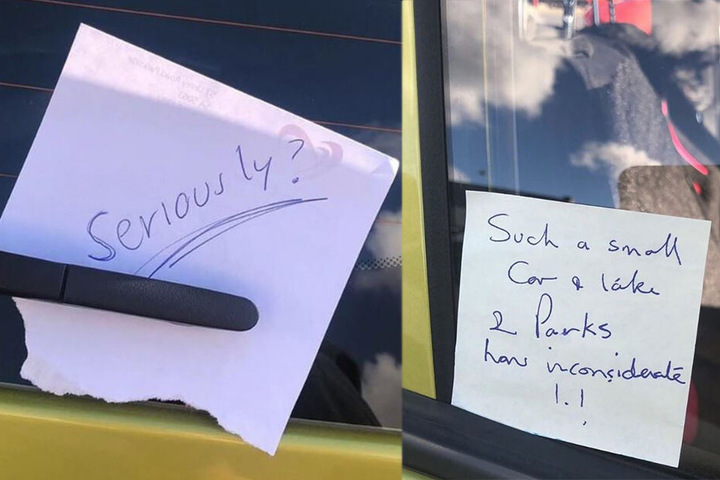 Seriously?
Such a small
Car & take
2 Parks
how inconsiderate
!.!